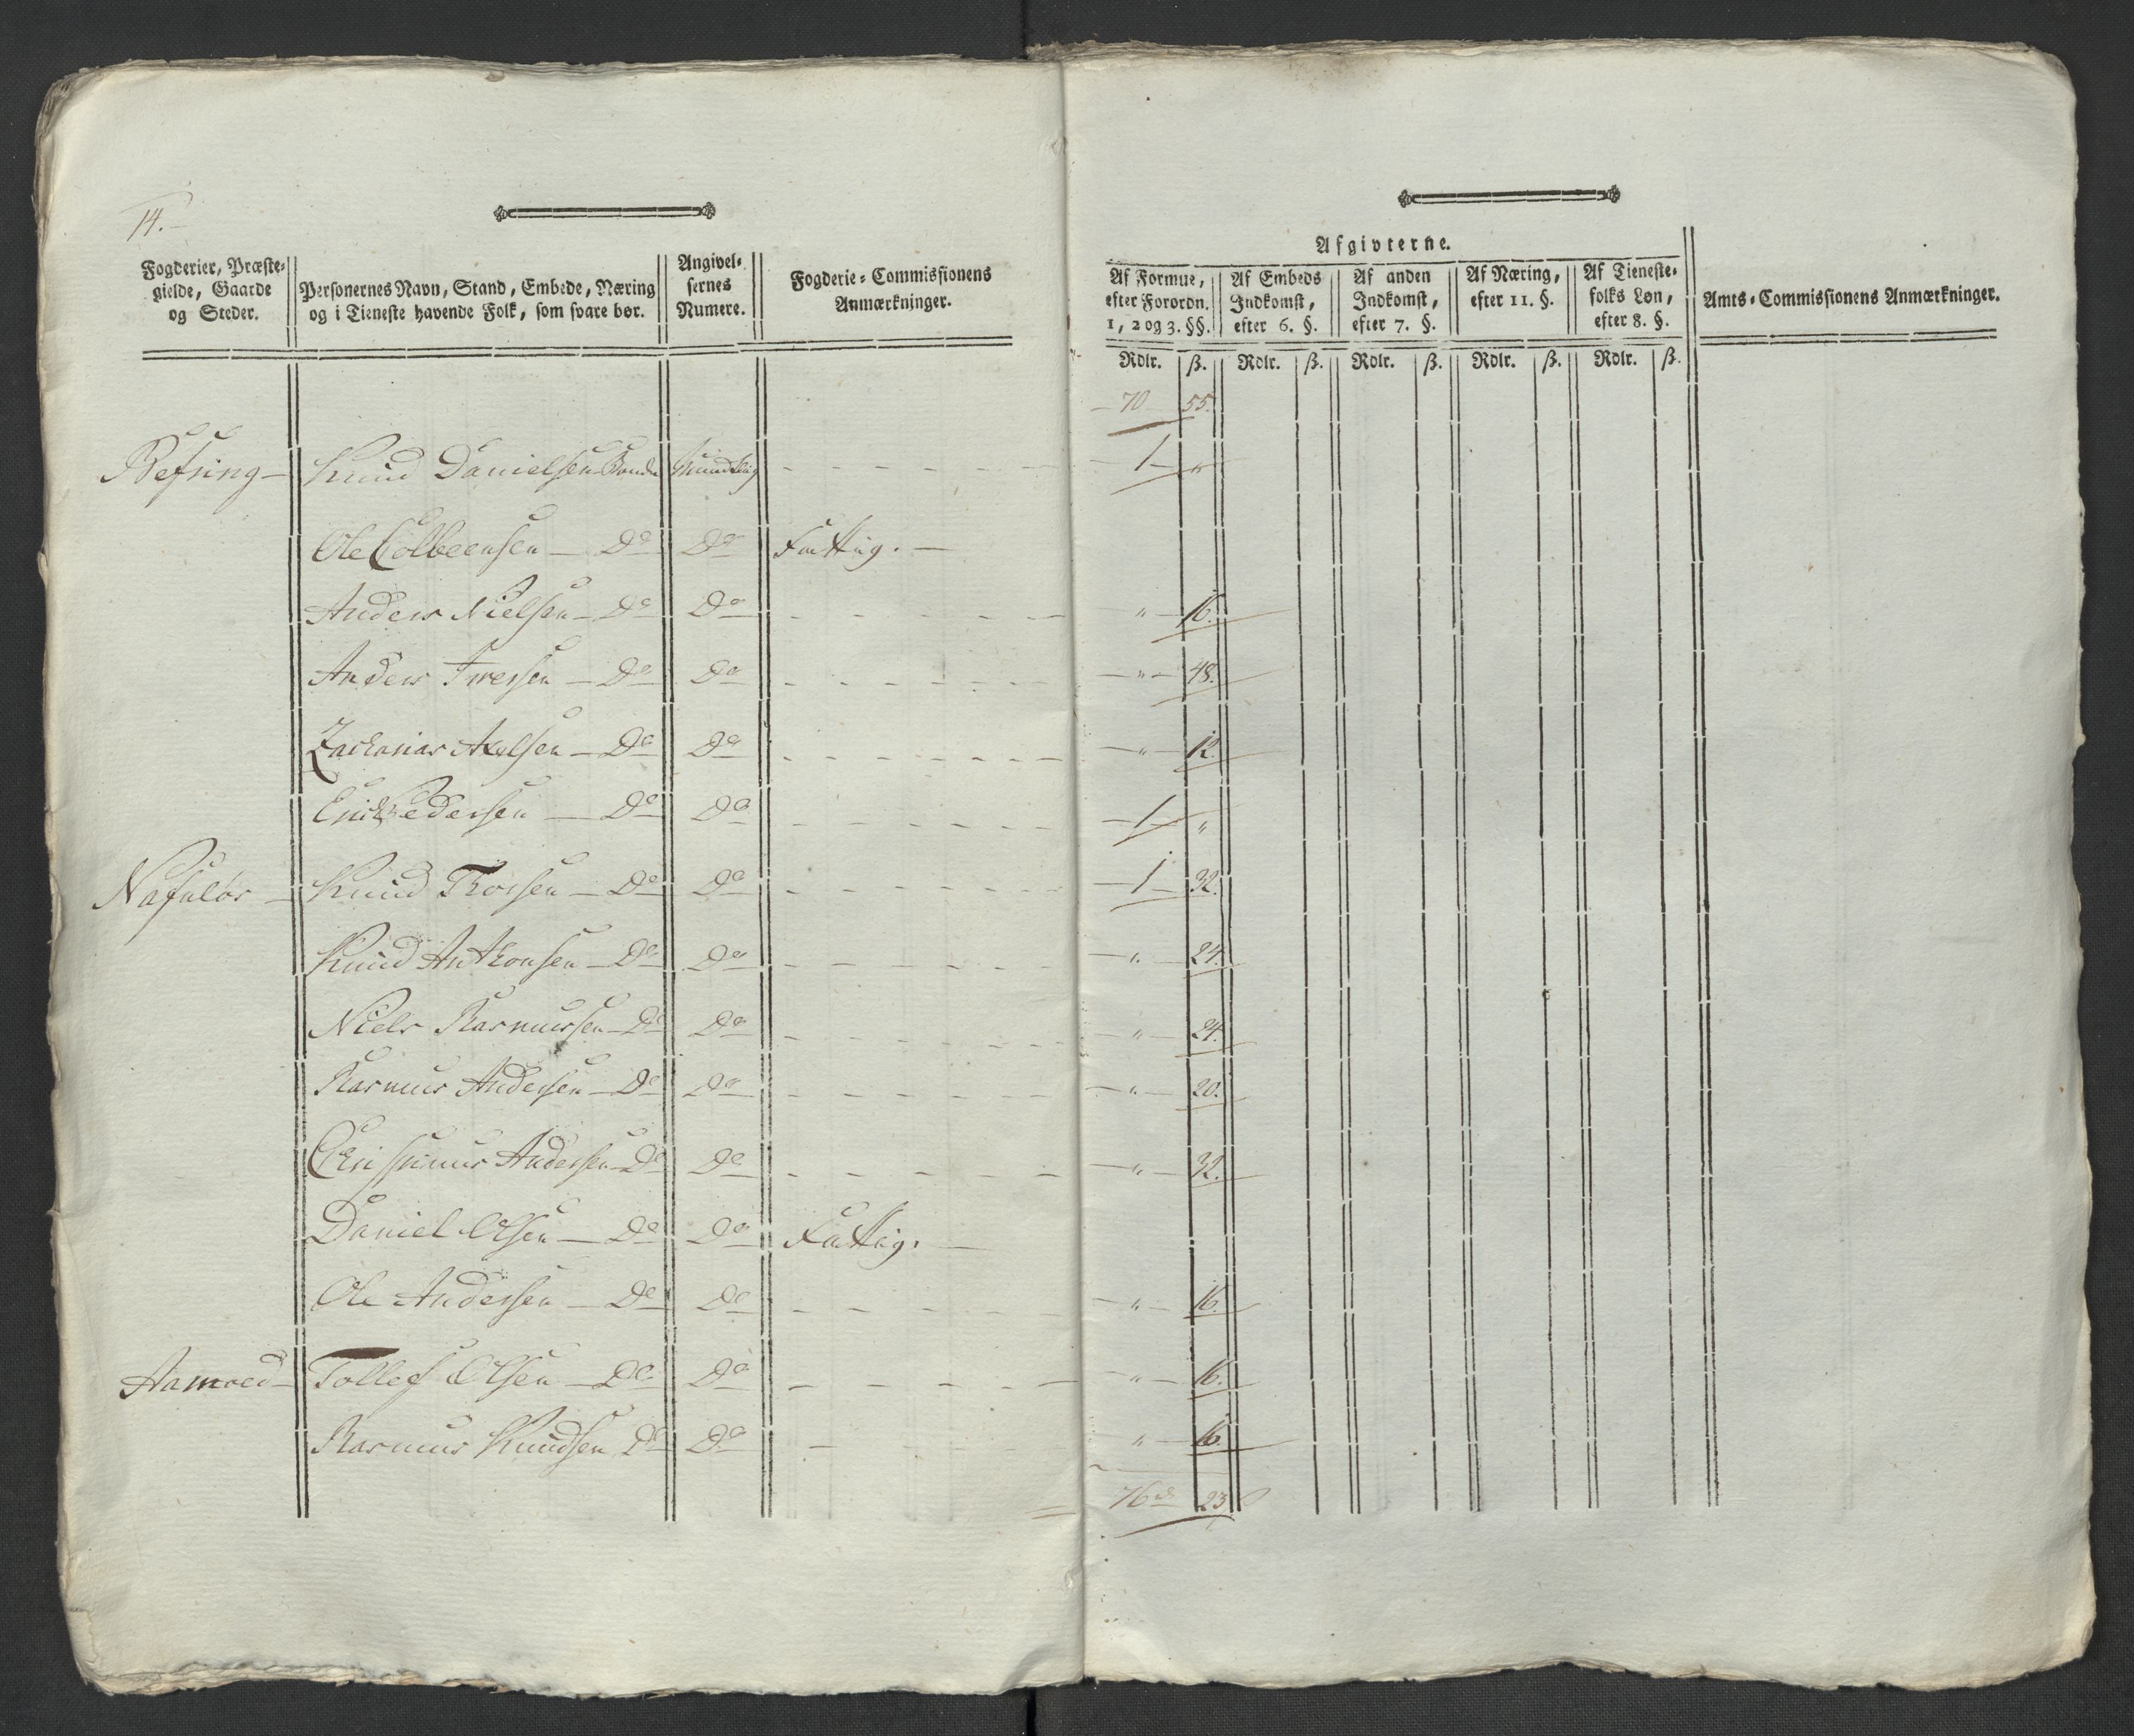 14.
Fogderier, Præste-
gielde, Gaarde
og Steder.
Personernes Navn, Stand, Embede, Næring
og i Tieneste havende Folk, som svare bør.
Angivel-
sernes
Numere.
Fogderie-Commissionens
Anmærkninger.
Afgivterne.
Af Formue,
efter Forordn.
1, 2 og 3. §§.
Af Embeds
Indkomst,
efter 6. §.
Af anden
Indkomst,
efter 7. §.
Af Næring,
efter 11. §.
Af Tieneste-
folks Løn,
efter 8. §.
Amts-Commissionens Anmærkninger.
Rdlr. ß. Rdlr. ß. Rdlr. ß. Rdlr. ß. Rdlr. ß.
70 55.
Refsing Knud Danielsen Bonde Mundtlig 1 "
Ole Colbeensen Do Do Fattig.
Anders Nielsen Do Do " 16.
Anders Iversen Do Do " 48.
Zacharias Axelsen Do Do " 12.
Erick Pedersen Do Do 1 "
Knud Thorsen Do Do 1 32.
Knud Anthonsen Do Do " 24.
Niels Rasmussen Do Do " 24.
Rasmus Andersen Do Do " 20.
Andersen Do Do " 32.
Daniel Olsen Do Do Fattig.
Ole Andersen Do Do " 16.
Aamoed Tollef Olsen Do Do " 16.
Rasmus Knudsen Do Do " 16.
76 rd 23 ß